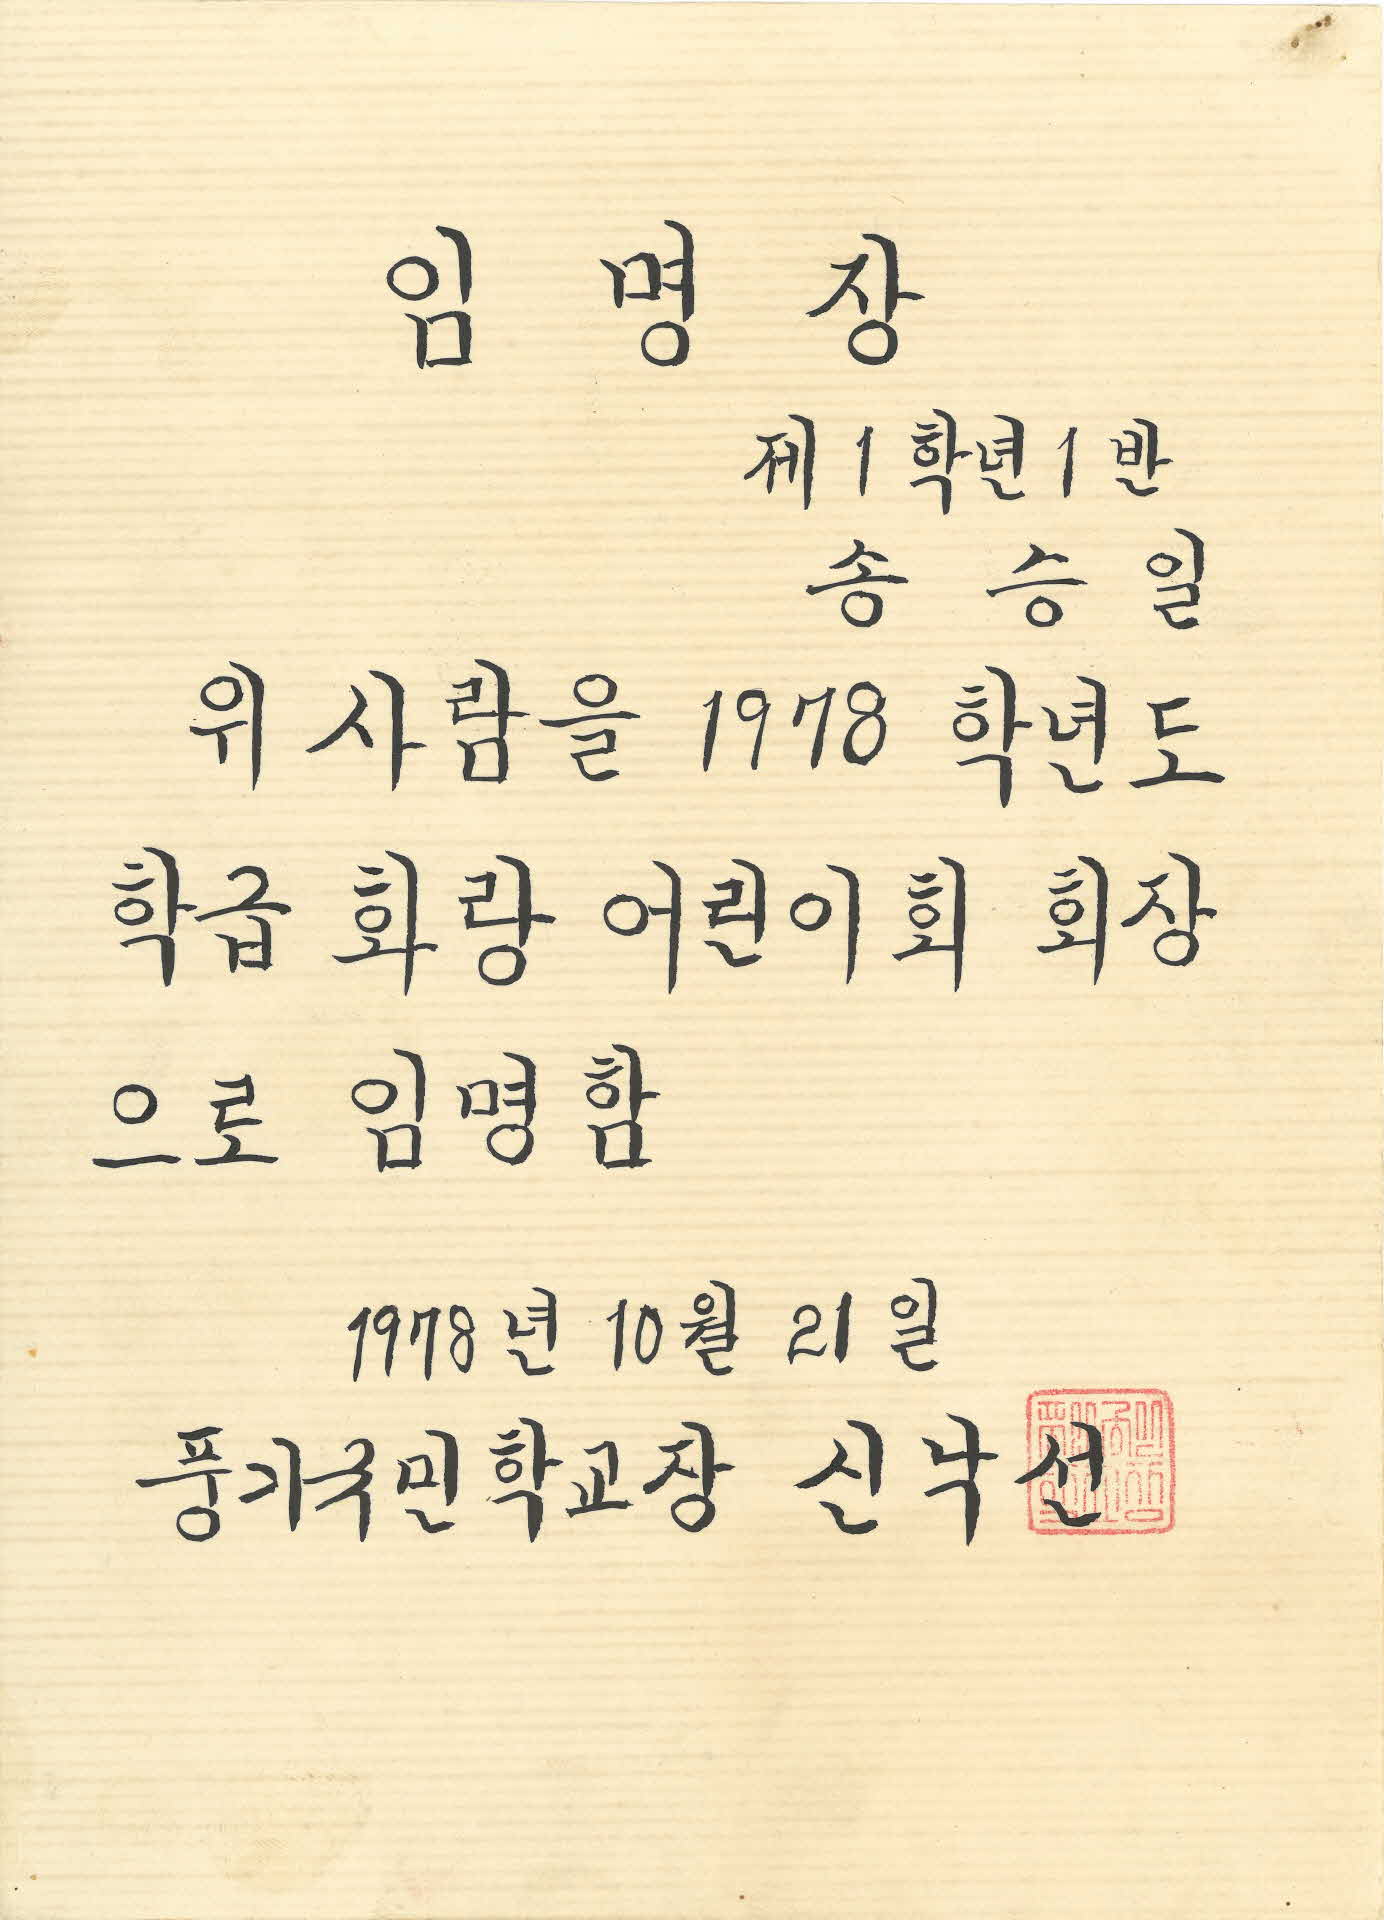 임명장
제1학년1반
송승일
위 사람을 1978 학년도
학급 화랑 어린이회 회장
으로 임명함
1978년 10월 21일
풍기국민학교장 신낙선